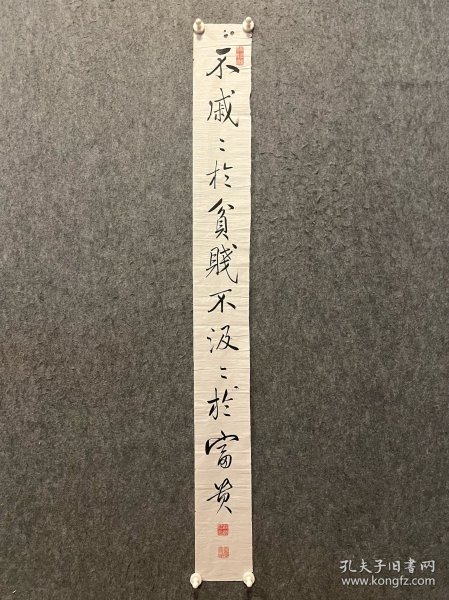 不戚〻於貧賤不汲〻於富貴
孔夫子旧书网
www.kongfz.com